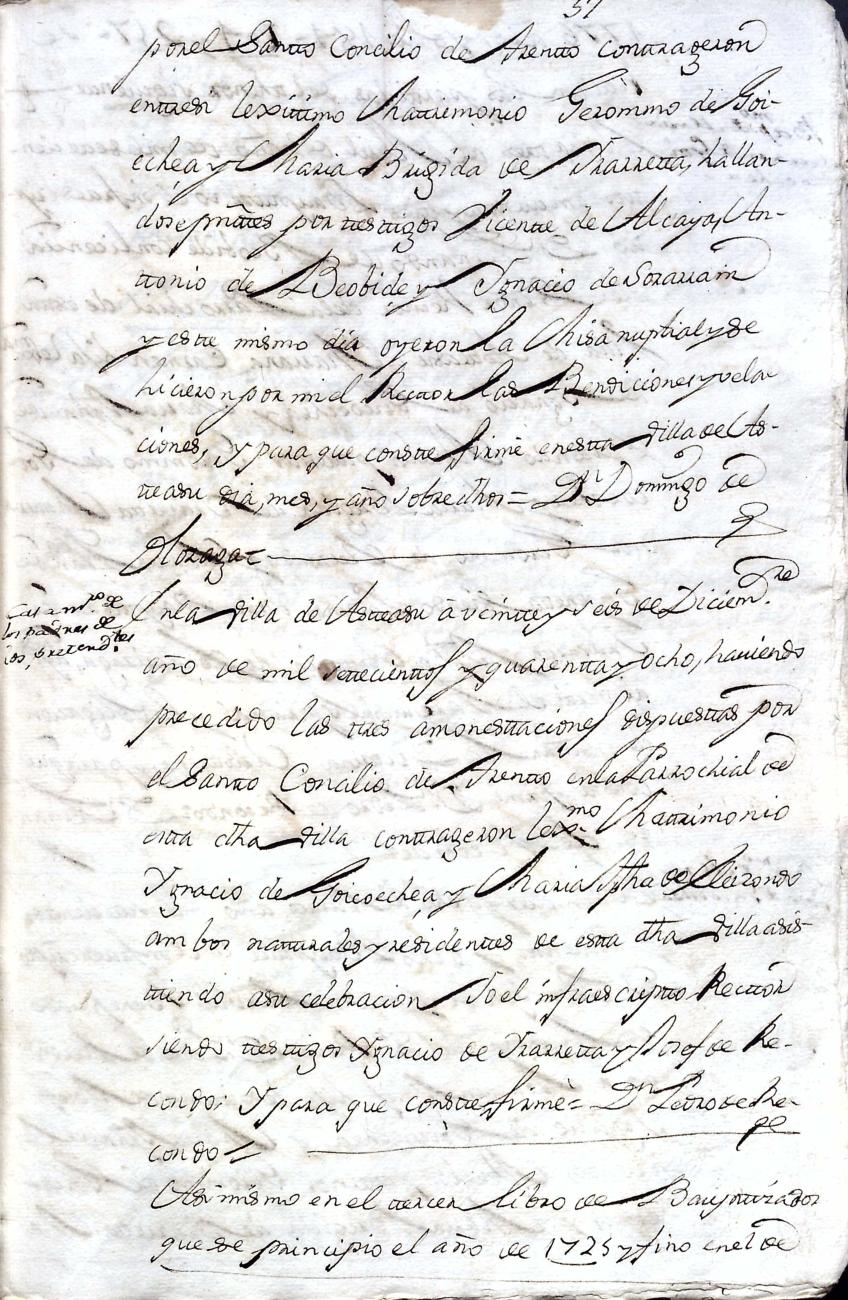 57
por el Santto Concilio de Trento conttrageron
entresi lexittimo Mattrimonio Geronimo de Goi-
echea y Maria Brigida de Yrarretta, hallan-
dose pñttes por ttesttigos Vicentte de Alcayaga, An-
ttonio de Beobide y Ygnacio de Sorarrain
y estte mismo dia oyeron la Misa nuptial y se
hicieron por mi el Recttor las Bendiciones y vela
ciones, y para que constte firmè en estta Villa de As-
tteasu dia, mes, y año sobre dhos = Dn Domingo de
Olozaga =
Casamto. de
los padres de
los pretendtes
En la Villa de Astteasu à veintte y seis de Diciembre
año de mil settecienttos y quarentta y ocho, haviendo
precedido las ttres amonesttaciones dispuesttas por
el Santto Concilio de Trentto en la Parrochial de
estta dha Villa conttrageron lexmo. Mattrimonio
Ygnacio de Goicoechea y Maria Jpha de Elizondo
ambos natturales y residenttes de estta dha Villa asis-
ttiendo a su celebracion Yo el infraescriptto Recttor
siendo ttesttigos Ygnacio de Yrarretta y Josef de Re-
condo; Y para que constte firmè = Dn Pedro de Re-
condo =
Asi mismo en el ttercer libro de Baupttizados
que de principio el año de 1725 y fino en el de